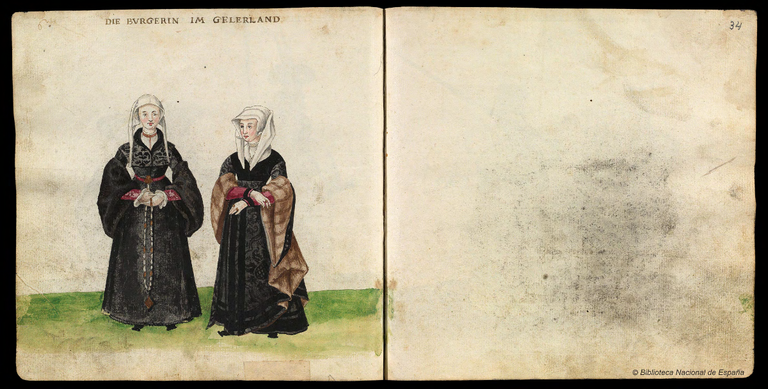 DIE BVRGERIN IM GELERLAND
34
© Biblioteca Nacional de España